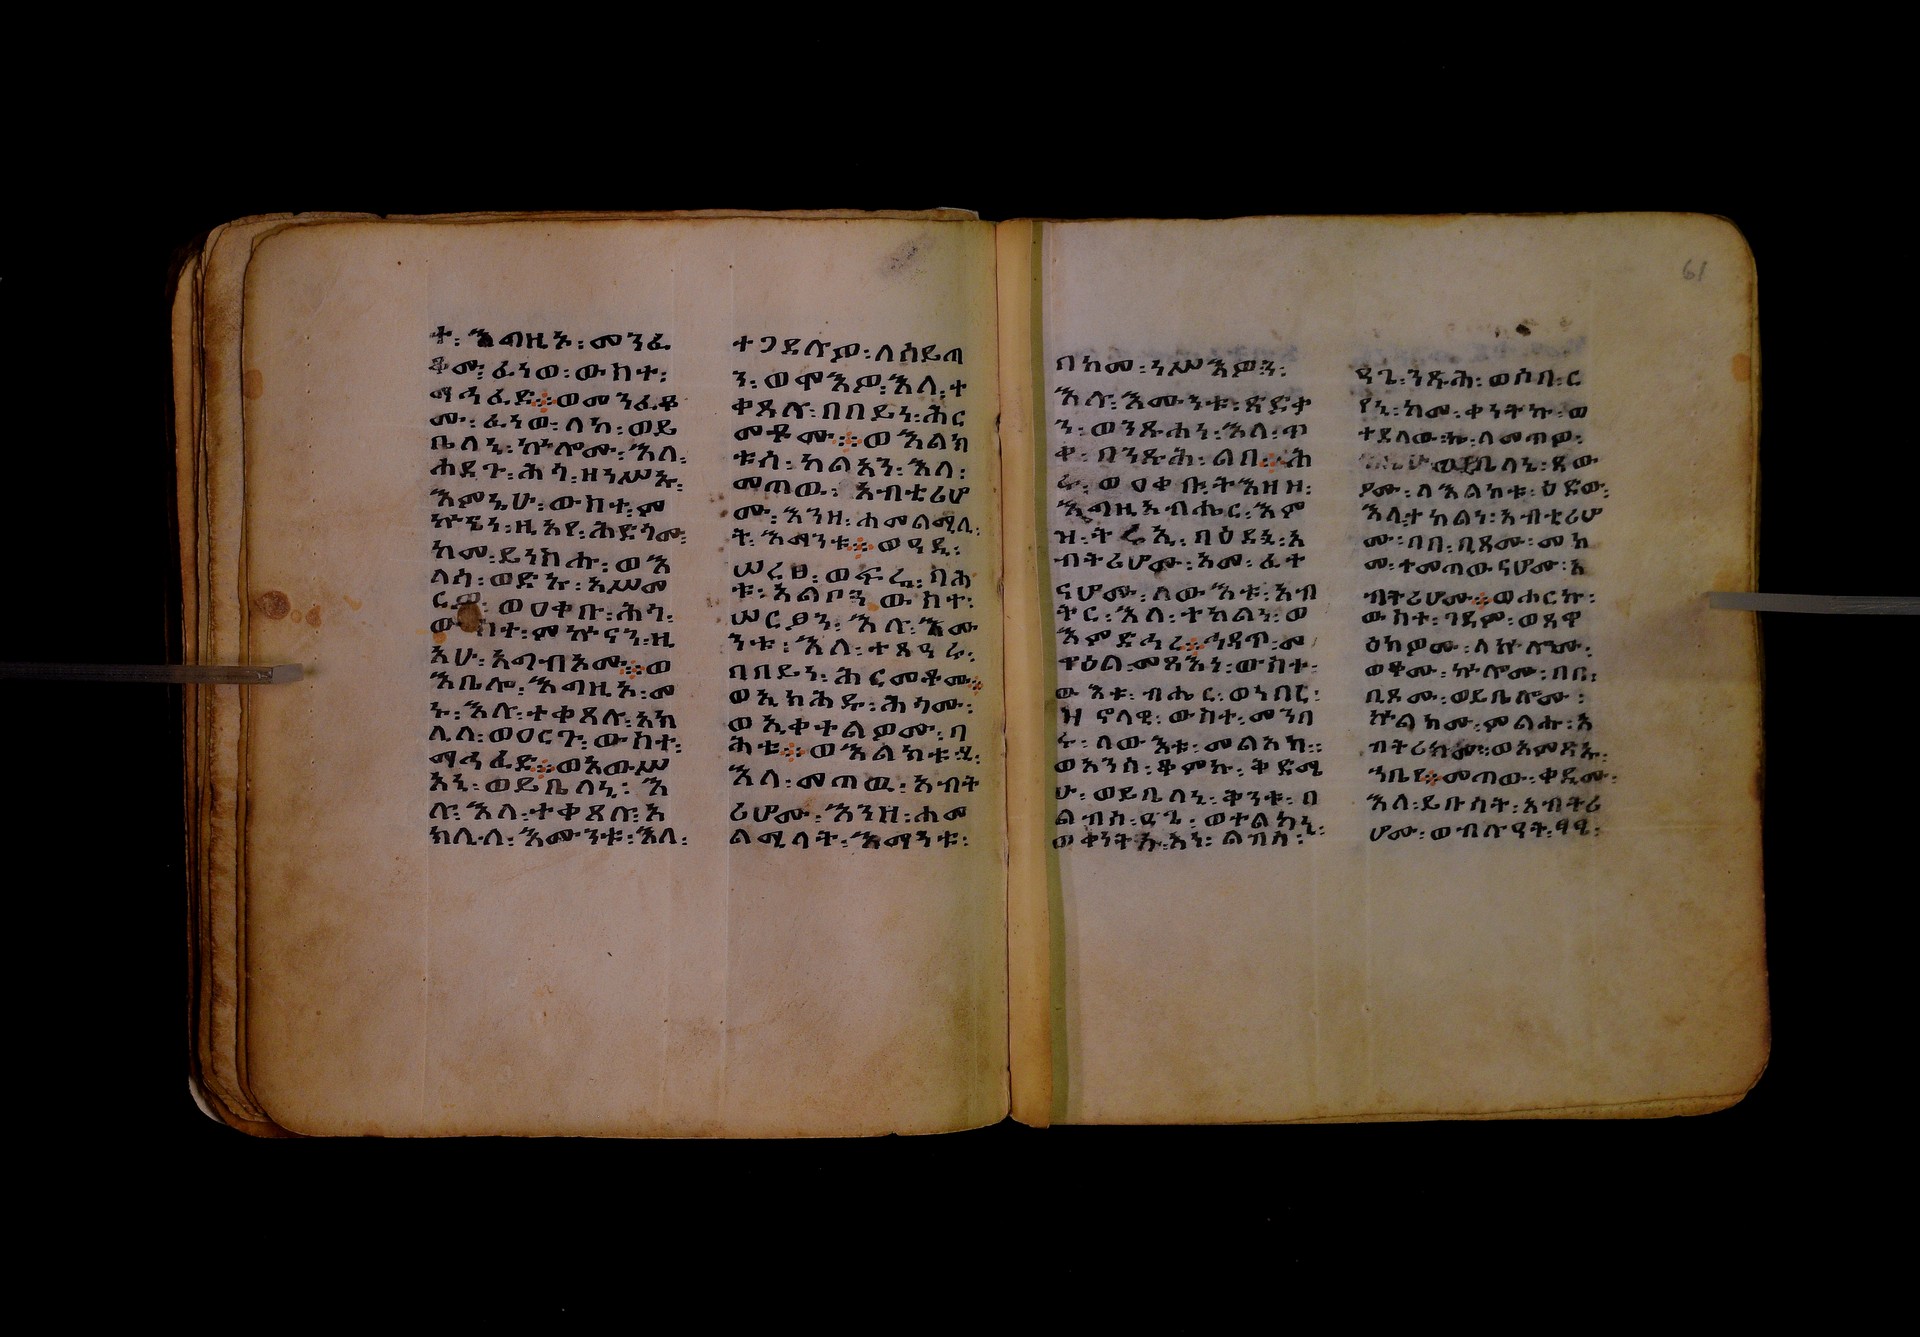 ተ፡ እግዚኦ፡ መንፈ
ቆሙ፡ ፈነወ፡ ውስተ፡
ማኅፈድ። ወመንፈቆ
ሙ፡ ፈነወ፡ ለከ፡ ወይ
ቤለኒ፡ ኵሎሙ፡ እለ፡
ሐደጉ፡ ሕገ፡ ዘንሥኡ፡
እምኔሁ፡ ውስተ፡ ም
ኵኔን፡ ዚአየ፡ ሕድጎሙ፡
ከመ፡ ይንስሑ፡ ወእ
ለሰ፡ ወድኡ፡ አሥመ
ርዎ፡ ወዐቀቡ፡ ሕገ፡
ውስተ፡ ምኵናን፡ ዚ
አሁ፡ አግብኦሙ። ወ
እቤሎ፡ እግዚኦ፡ መ
ኑ፡ እሉ፡ ተቀጸሉ፡ አክ
ሊለ፡ ወዐርጉ፡ ውስተ፡
ማኅፈድ። ወአውሥ
አኒ፡ ወይቤለኒ፡ እ
ሉ፡ እለ፡ ተቀጸሉ፡ አ
ክሊለ፡ እሙንቱ፡ እለ፡
ተጋደሉዎ፡ ለሰይጣ
ን፡ ወሞእዎ፡ እለ፡ ተ
ቀጸሉ፡ በበይነ፡ ሕር
መቶሙ። ወእልክ
ቱሰ፡ ካልኣን፡ እለ፡
መጠዉ፡ አብቲሪሆ
ሙ፡ እንዘ፡ ሐመልሚላ
ት፡ እማንቱ። ወዓዲ፡
ሠረፀ፡ ወፍሬ፡ ባሕ
ቱ፡ አልቦን፡ ውስተ፡
ሠርፆን፡ እሉ፡ እሙ
ንቱ፡ እለ፡ ተጸዓሩ፡
በበይነ፡ ሕርመቶሙ።
ወኢክሕዱ፡ ሕጎሙ፡
ወኢቀተልዎሙ፡ ባ
ሕቱ። ወእልክቱሂ፡
እለ፡ መጠዉ፡ አብት
ሪሆሙ፡ እንዘ፡ ሐመ
ልሚላት፡ እማንቱ፡
በከመ፡ ነሥእዎን፡
እሉ፡ እሙንቱ፡ ጻድቃ
ን፡ ወንጹሓን፡ እለ፡ ጥ
ቀ፡ በንጹሕ፡ ልብ። ሕ
ሩ፡ ወዐቀቡ፡ ትእዘዘ፡
እግዚአብሔር፡ እም
ዝ፡ ትሬኢ፡ በዕደኔ፡ አ
ብትሪሆሙ፡ አመ፡ ፈተ
ናሆሙ፡ ለውእቱ፡ አብ
ትር፡ እለ፡ ተካልኒ፡ ወ
እምድኅረ። ኅዳጥ፡ መ
ዋዕል፡ መጻእነ፡ ውስተ፡
ውእቱ፡ ብሔር፡ ወነበረ፡
ዝኖላዊ፡ ውስተ፡ መንበ
ሩ፡ ለውእቱ፡ መልአክ።
ወአንሰ፡ ቆምኩ፡ ቅድሜ
ሁ፡ ወይቤለኒ፡ ቅንቱ፡ በ
ልብስ፡ ዳጌ፡ ወተልአከኒ፡
ወቀነትኩ፡ አነ፡ ልብሰ፡
ዳጌ፡ ንጹሕ፡ ወሶበ፡ ር
የኒ፡ ከመ፡ ቀነትኩ፡ ወ
ተደለውኩ፡ ለመጠዎ፡
ወይቤለኒ፡ ጸው
ዖሙ፡ ለእልክቱ፡ ዕደው፡
እለ፡ ተካልነ፡ አብቲሪሆ
ሙ፡ በበ፡ ቢጾሙ፡ መከ
መ፡ ተመጠውናሆሙ፡ አ
ብትሪሆሙ። ወሐርኩ፡
ውስተ፡ ገዳም፡ ወጸዋ
ዕክዎሙ፡ ለኵሎሙ፡
ወቆሙ፡ ኵሎሙ፡ በበ፡
ቢጾሙ፡ ወይቤሎሙ፡
ኵልክሙ፡ ምልሑ፡ አ
ብትሪክሙ፡ ወአምጽኡ፡
ኀቤየ። መጠው፡ ቀዲሙ፡
እለ፡ ይቡሳት፡ አብትሪ
ሆሙ፡ ወብሉያት፡